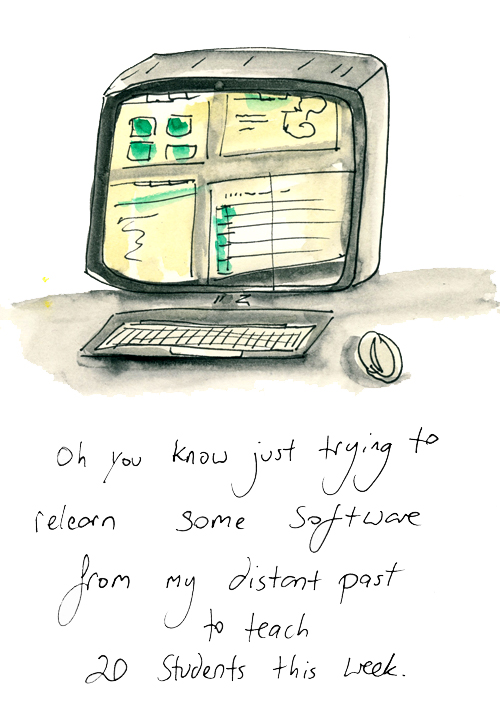 Oh you know just trying to
relearn some software
from my distant past
to teach
20 Students this week.